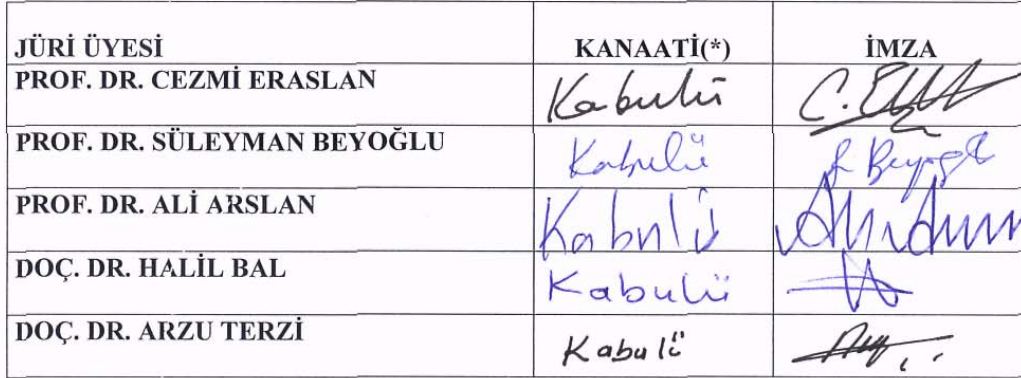 JÜRİ ÜYESİ KANAATİ(*) İMZA
PROF. DR. CEZMİ ERASLAN Kabulü
PROF. DR. SÜLEYMAN BEYOĞLU Kabulü
PROF. DR. ALİ ARSLAN Kabulü
DOÇ. DR. HALİL BAL Kabulü
DOÇ. DR. ARZU TERZİ Kabulü